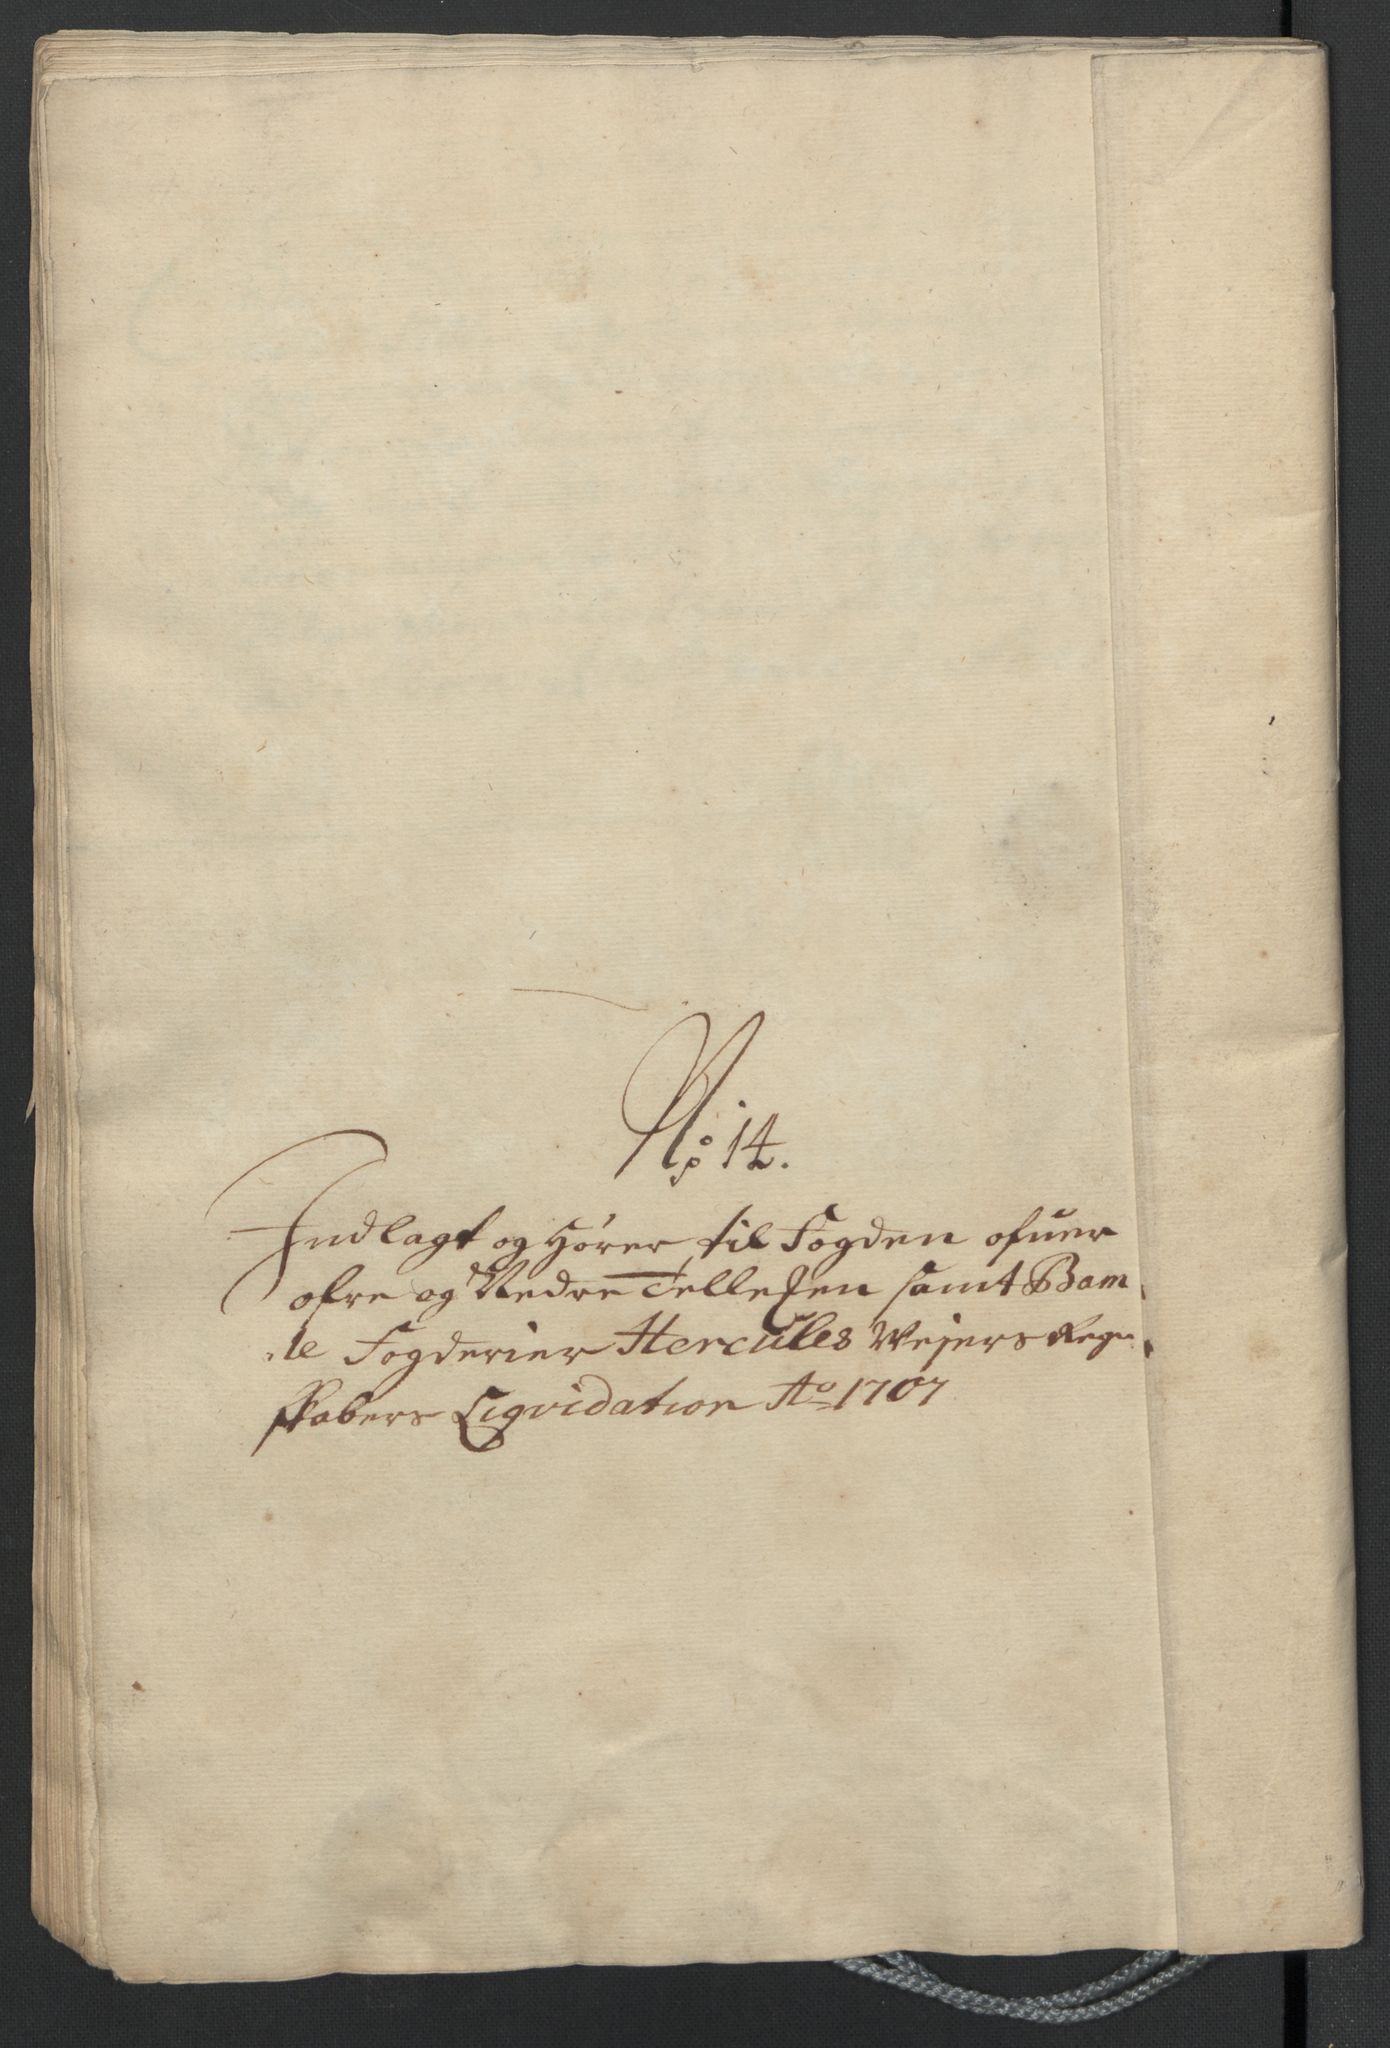 No: 14.
Indlagt og Hører til Fogden ofuer
ofre og Nedre Tellefen samt Bam
le Fogderier Hercules Weijers Regn
skabers Liqvidation Ao 1707